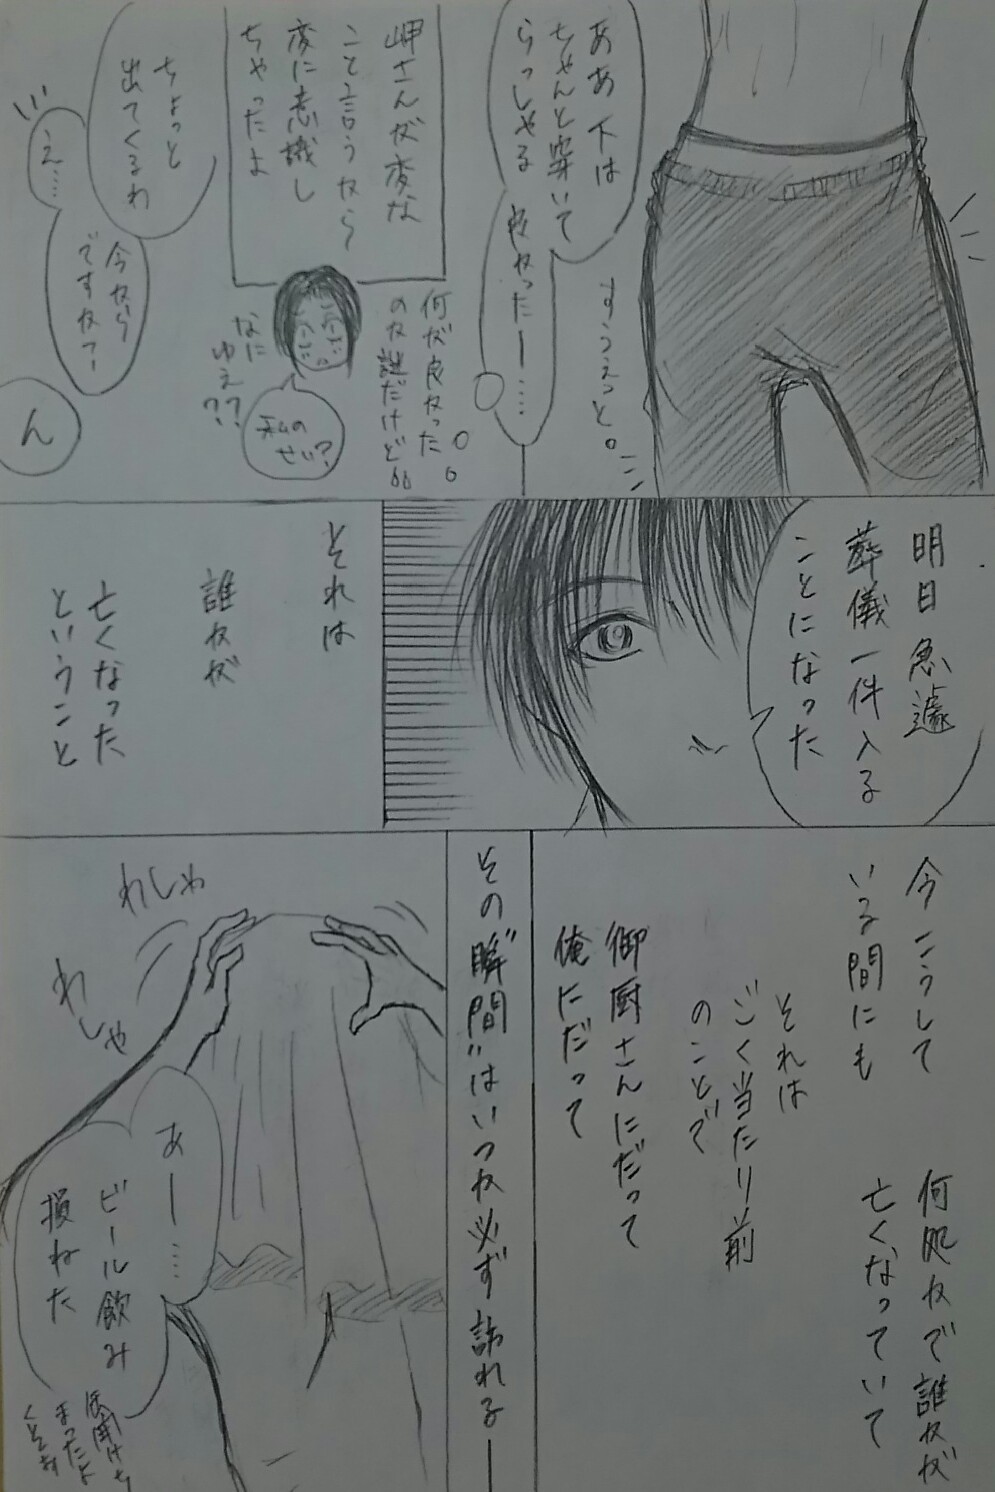 ああ下は
ちゃんと穿いて
らっしゃる
良かったー……。
すうぇっと。
何が良かった
のか謎だけど
岬さんが変な
こと言うから
変に意識し
ちゃったよ
私の
せい?
なに
ゆえ??
ちょっと
出てくるわ
え……
今から
ですか?
ん
明日急遽
葬儀一件入る
ことになった
それは
誰かが
亡くなった
ということ
今こうして
いる間にも
何処かで誰かが
亡くなっていて
それは
ごく当たり前
のことで
御厨さんにだって
俺にだって
その“瞬間”はいつか必ず訪れる――
わしゃ
わしゃ
あー……
ビール飲み
損ねた
まったよ
くそぉ